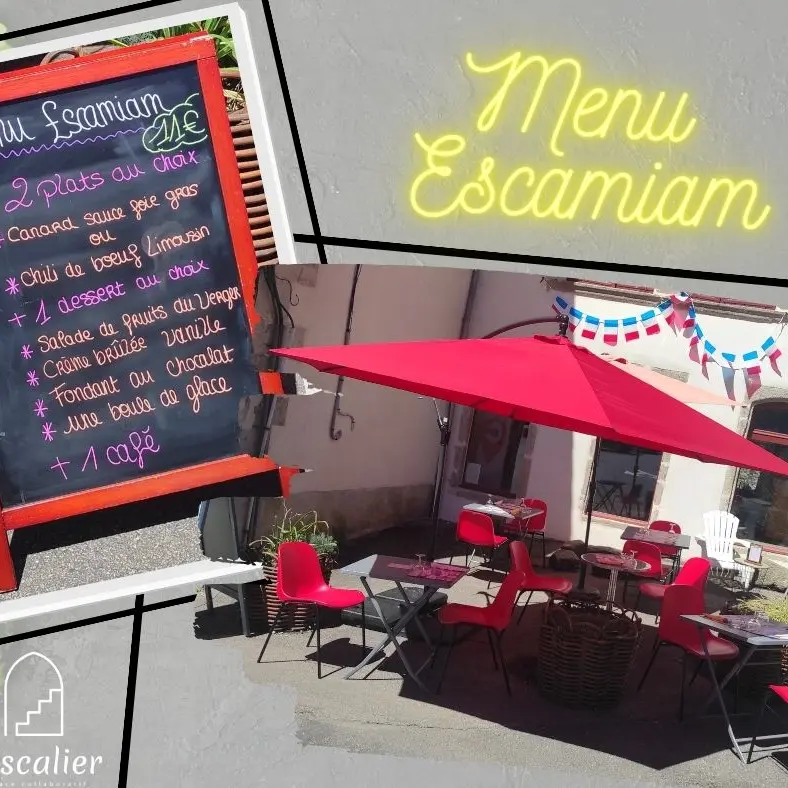 Menu
Escamiam
nu Escamiam
11€
2 plats au choix
Canard sauce foie gras
ou
* Chili de boeuf Limousin
+ 1 dessert au choix
* Salade de fruits du Verger
* Crème brûlée vanille
* Fondant au chocolat
* une boule de glace
+ 1 café
scalier